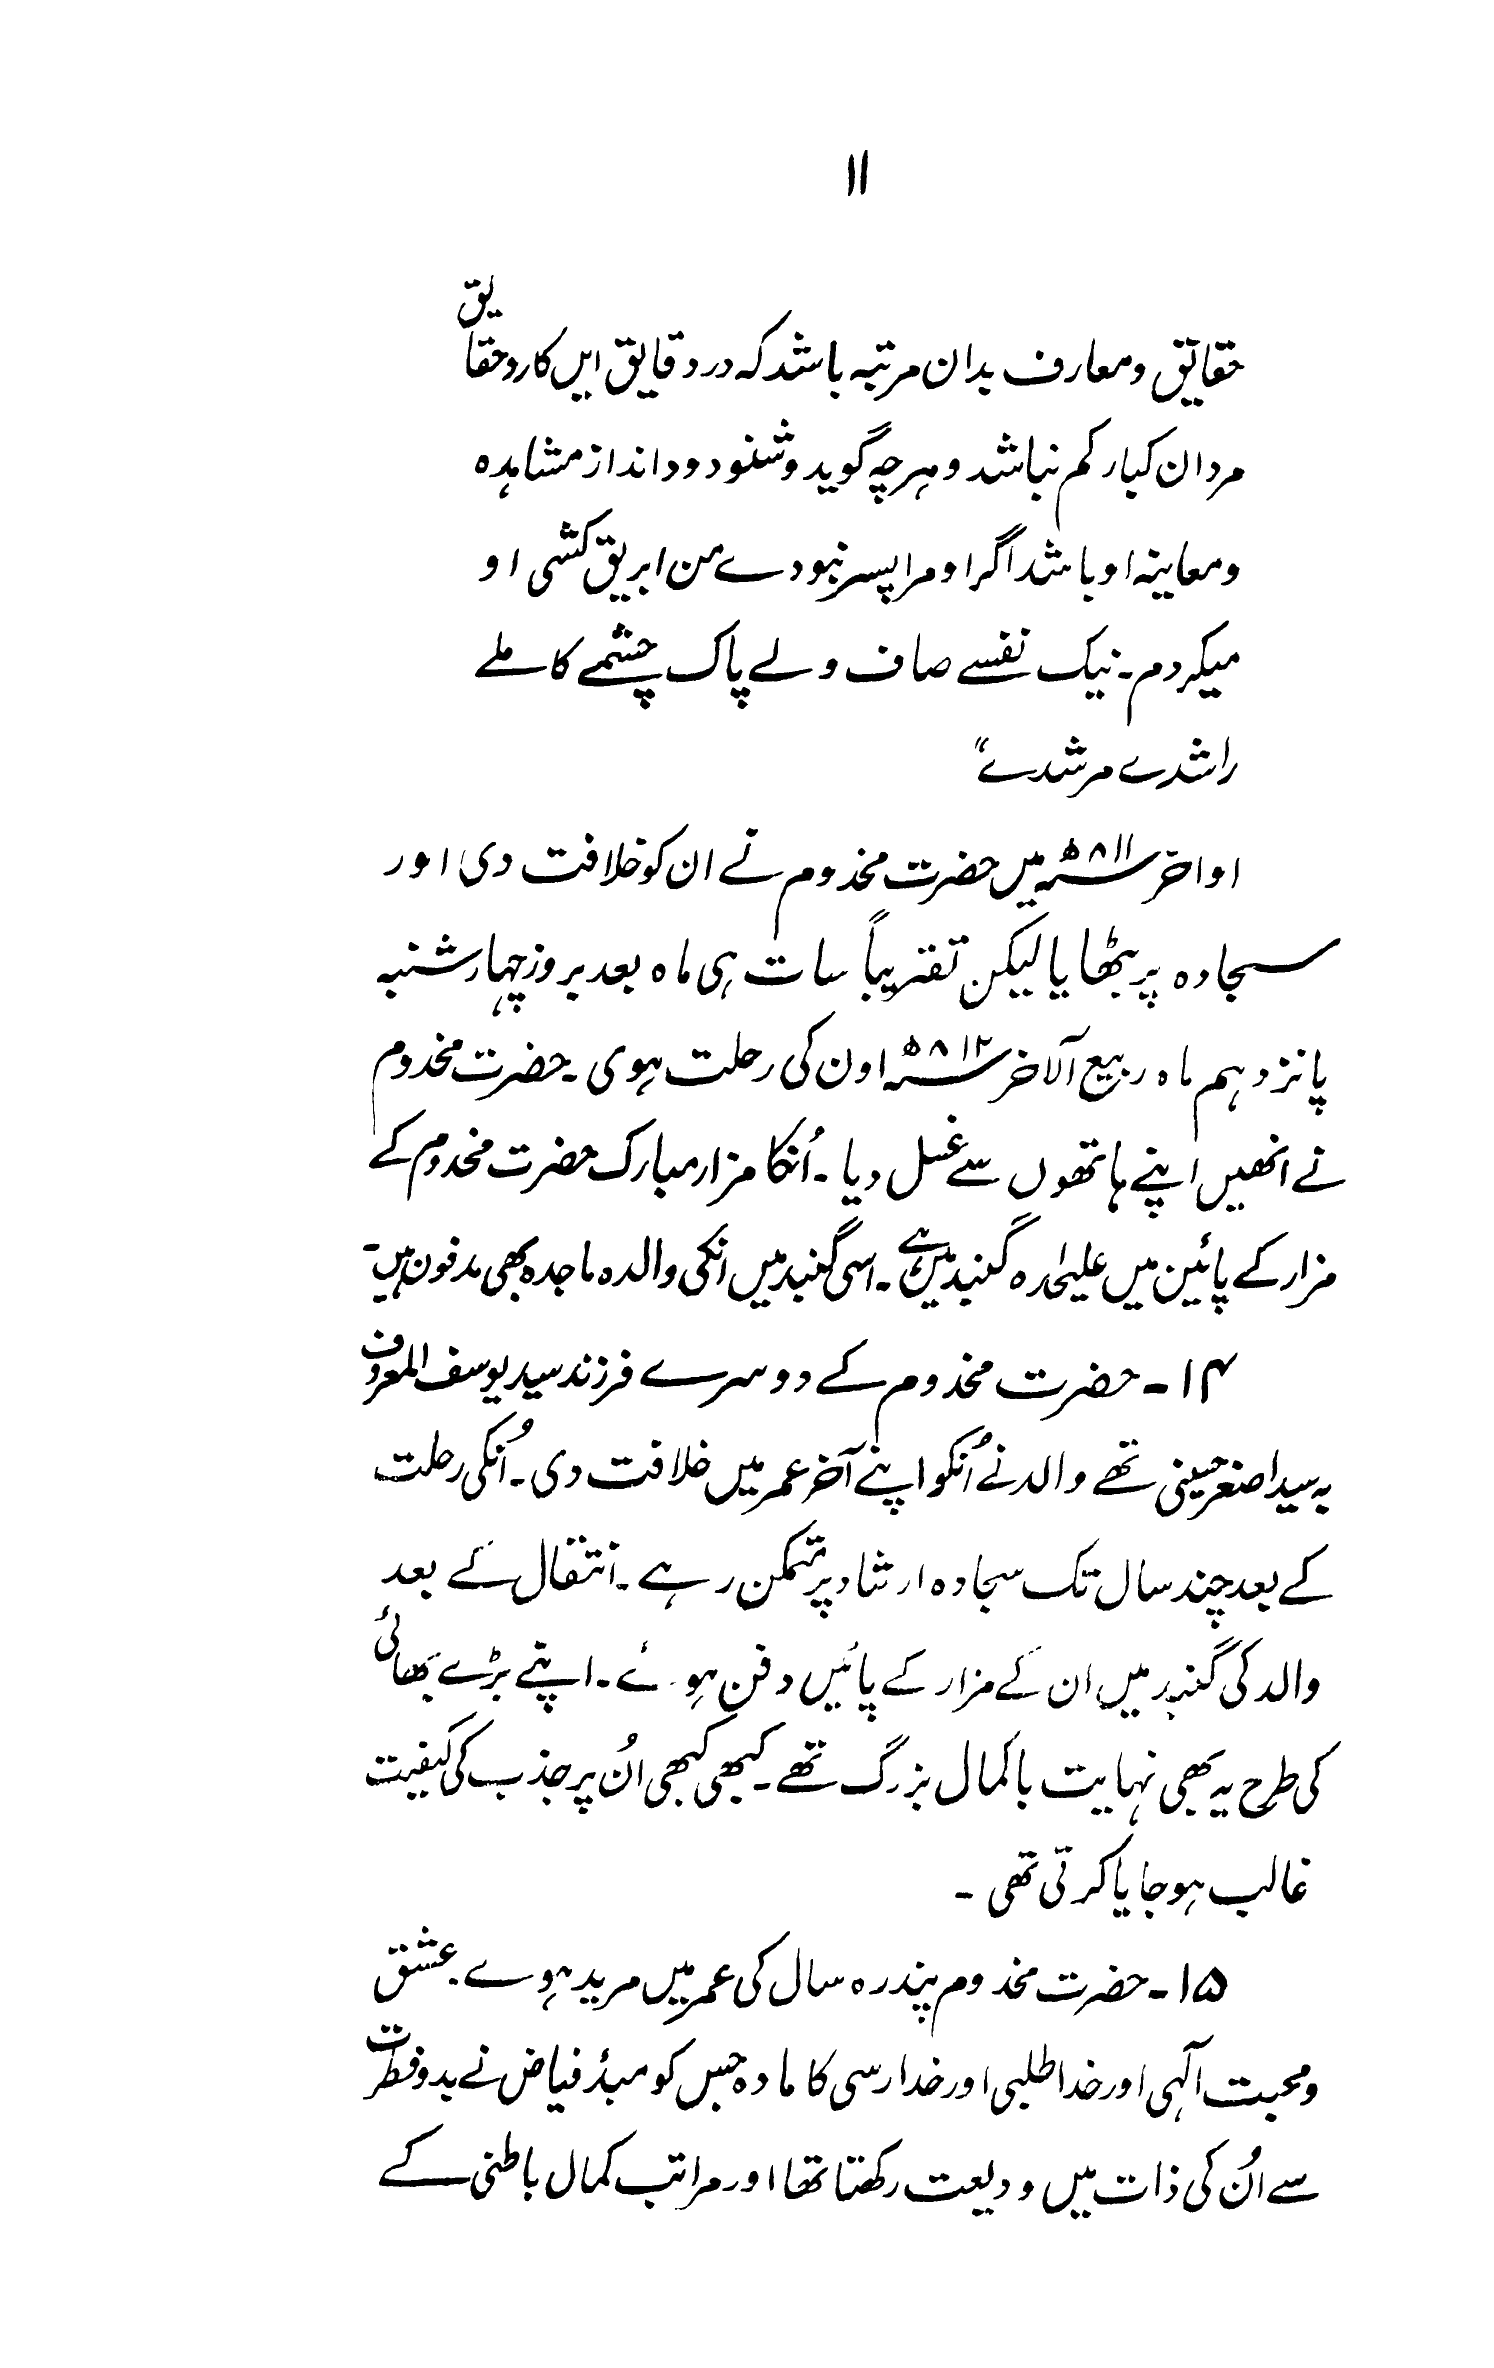 ۱۱
حقایق ومعارف بدان مرتبہ باشد کہ در دقایق ایں کار وحقایق
مردان کبار کم نباشد و ہرچہ گوید و شنود و داند از مشاہدہ
ومعاینہ او باشد اگر او مرا پسر نبودے من ابریق کشی او
میکردم ۔ نیک نفسے صاف ولے پاک چشمے کاملے
راشدے مرشدے"
اواخر ۸۱۱ھ میں حضرت مخدوم نے ان کو خلافت دی اور
سجادہ پر بٹھایا لیکن تقریباً سات ہی ماہ بعد بروز چہارشنبہ
پانزدہم ماہ ربیع الآخر ۸۱۲ھ اون کی رحلت ہوی ۔ حضرت مخدوم
نے انھیں اپنے ہاتھوں سے غسل دیا ۔ اُنکا مزار مبارک حضرت مخدوم کے
مزار کے پائین میں علیٰحدہ گنبد میں ہے ۔ اسی گنبد میں انکی والدہ ماجدہ بھی مدفون ہیں ۔
۱۴ ۔ حضرت مخدوم کے دوسرے فرزند سید یوسف المعروف
بہ سید اصغر حسینی تھے والد نے اُنکو اپنے آخر عمر میں خلافت دی ۔ اُنکی رحلت
کے بعد چند سال تک سجادہ ارشاد پر متمکن رہے ۔ انتقال کے بعد
والد کی گنبد میں ان کے مزار کے پائیں دفن ہوئے ۔ اپنے بڑے بھائی
کی طرح یہ بھی نہایت باکمال بزرگ تھے ۔ کبھی کبھی اُن پر جذب کی کیفیت
غالب ہو جایا کرتی تھی ۔
۱۵ ۔ حضرت مخدوم پندرہ سال کی عمر میں مرید ہوے ۔ عشق
ومحبت آلہی اور خدا طلبی اور خدا رسی کا مادہ جس کو مبدٔ فیاض نے بدو فطرت
سے اُن کی ذات میں ودیعت رکھتا تھا اور مراتب کمال باطنی کے